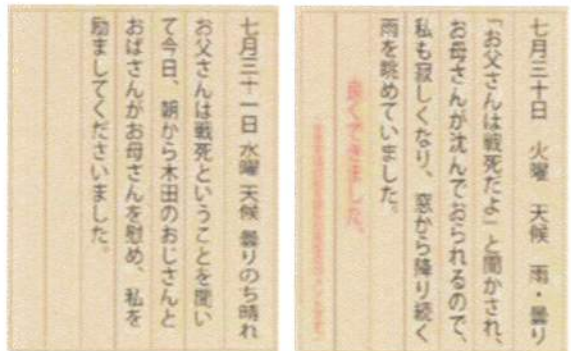 七月三十日　火曜　天候　雨・曇り
「お父さんは戦死だよ」と聞かされ、
お母さんが沈んでおられるので、
私も寂しくなり、窓から降り続く
雨を眺めていました。
良くできました。
七月三十一日 水曜 天候 曇りのち晴れ
お父さんは戦死ということを聞い
て今日、朝から木田のおじさんと
おばさんがお母さんを慰め、私を
励ましてくださいました。